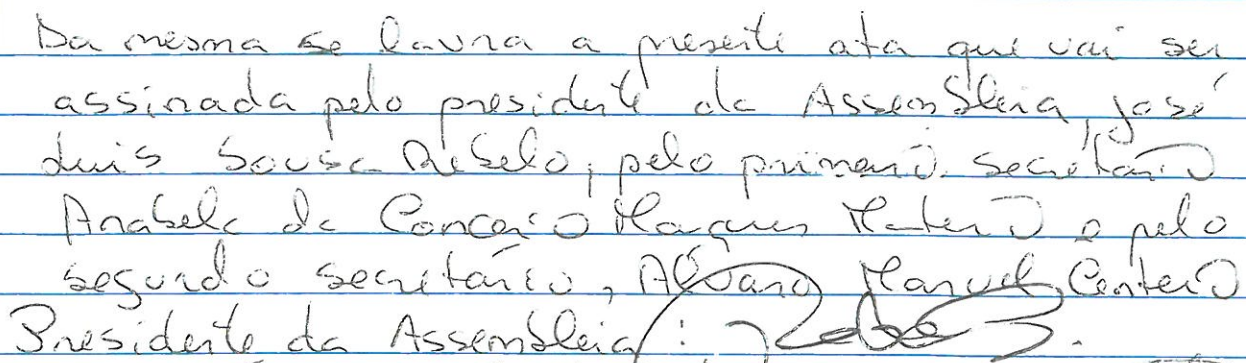 Da mesma se lavra a presente ata que vai ser
assinada pelo presidente da Assembleia, José
Luis Sousa Rebelo, pelo primeiro secretário
Anabela da Conceição Marques Mateiro e pelo
segundo secretário, Álvaro Manuel Centeio
Presidente da Assembleia: